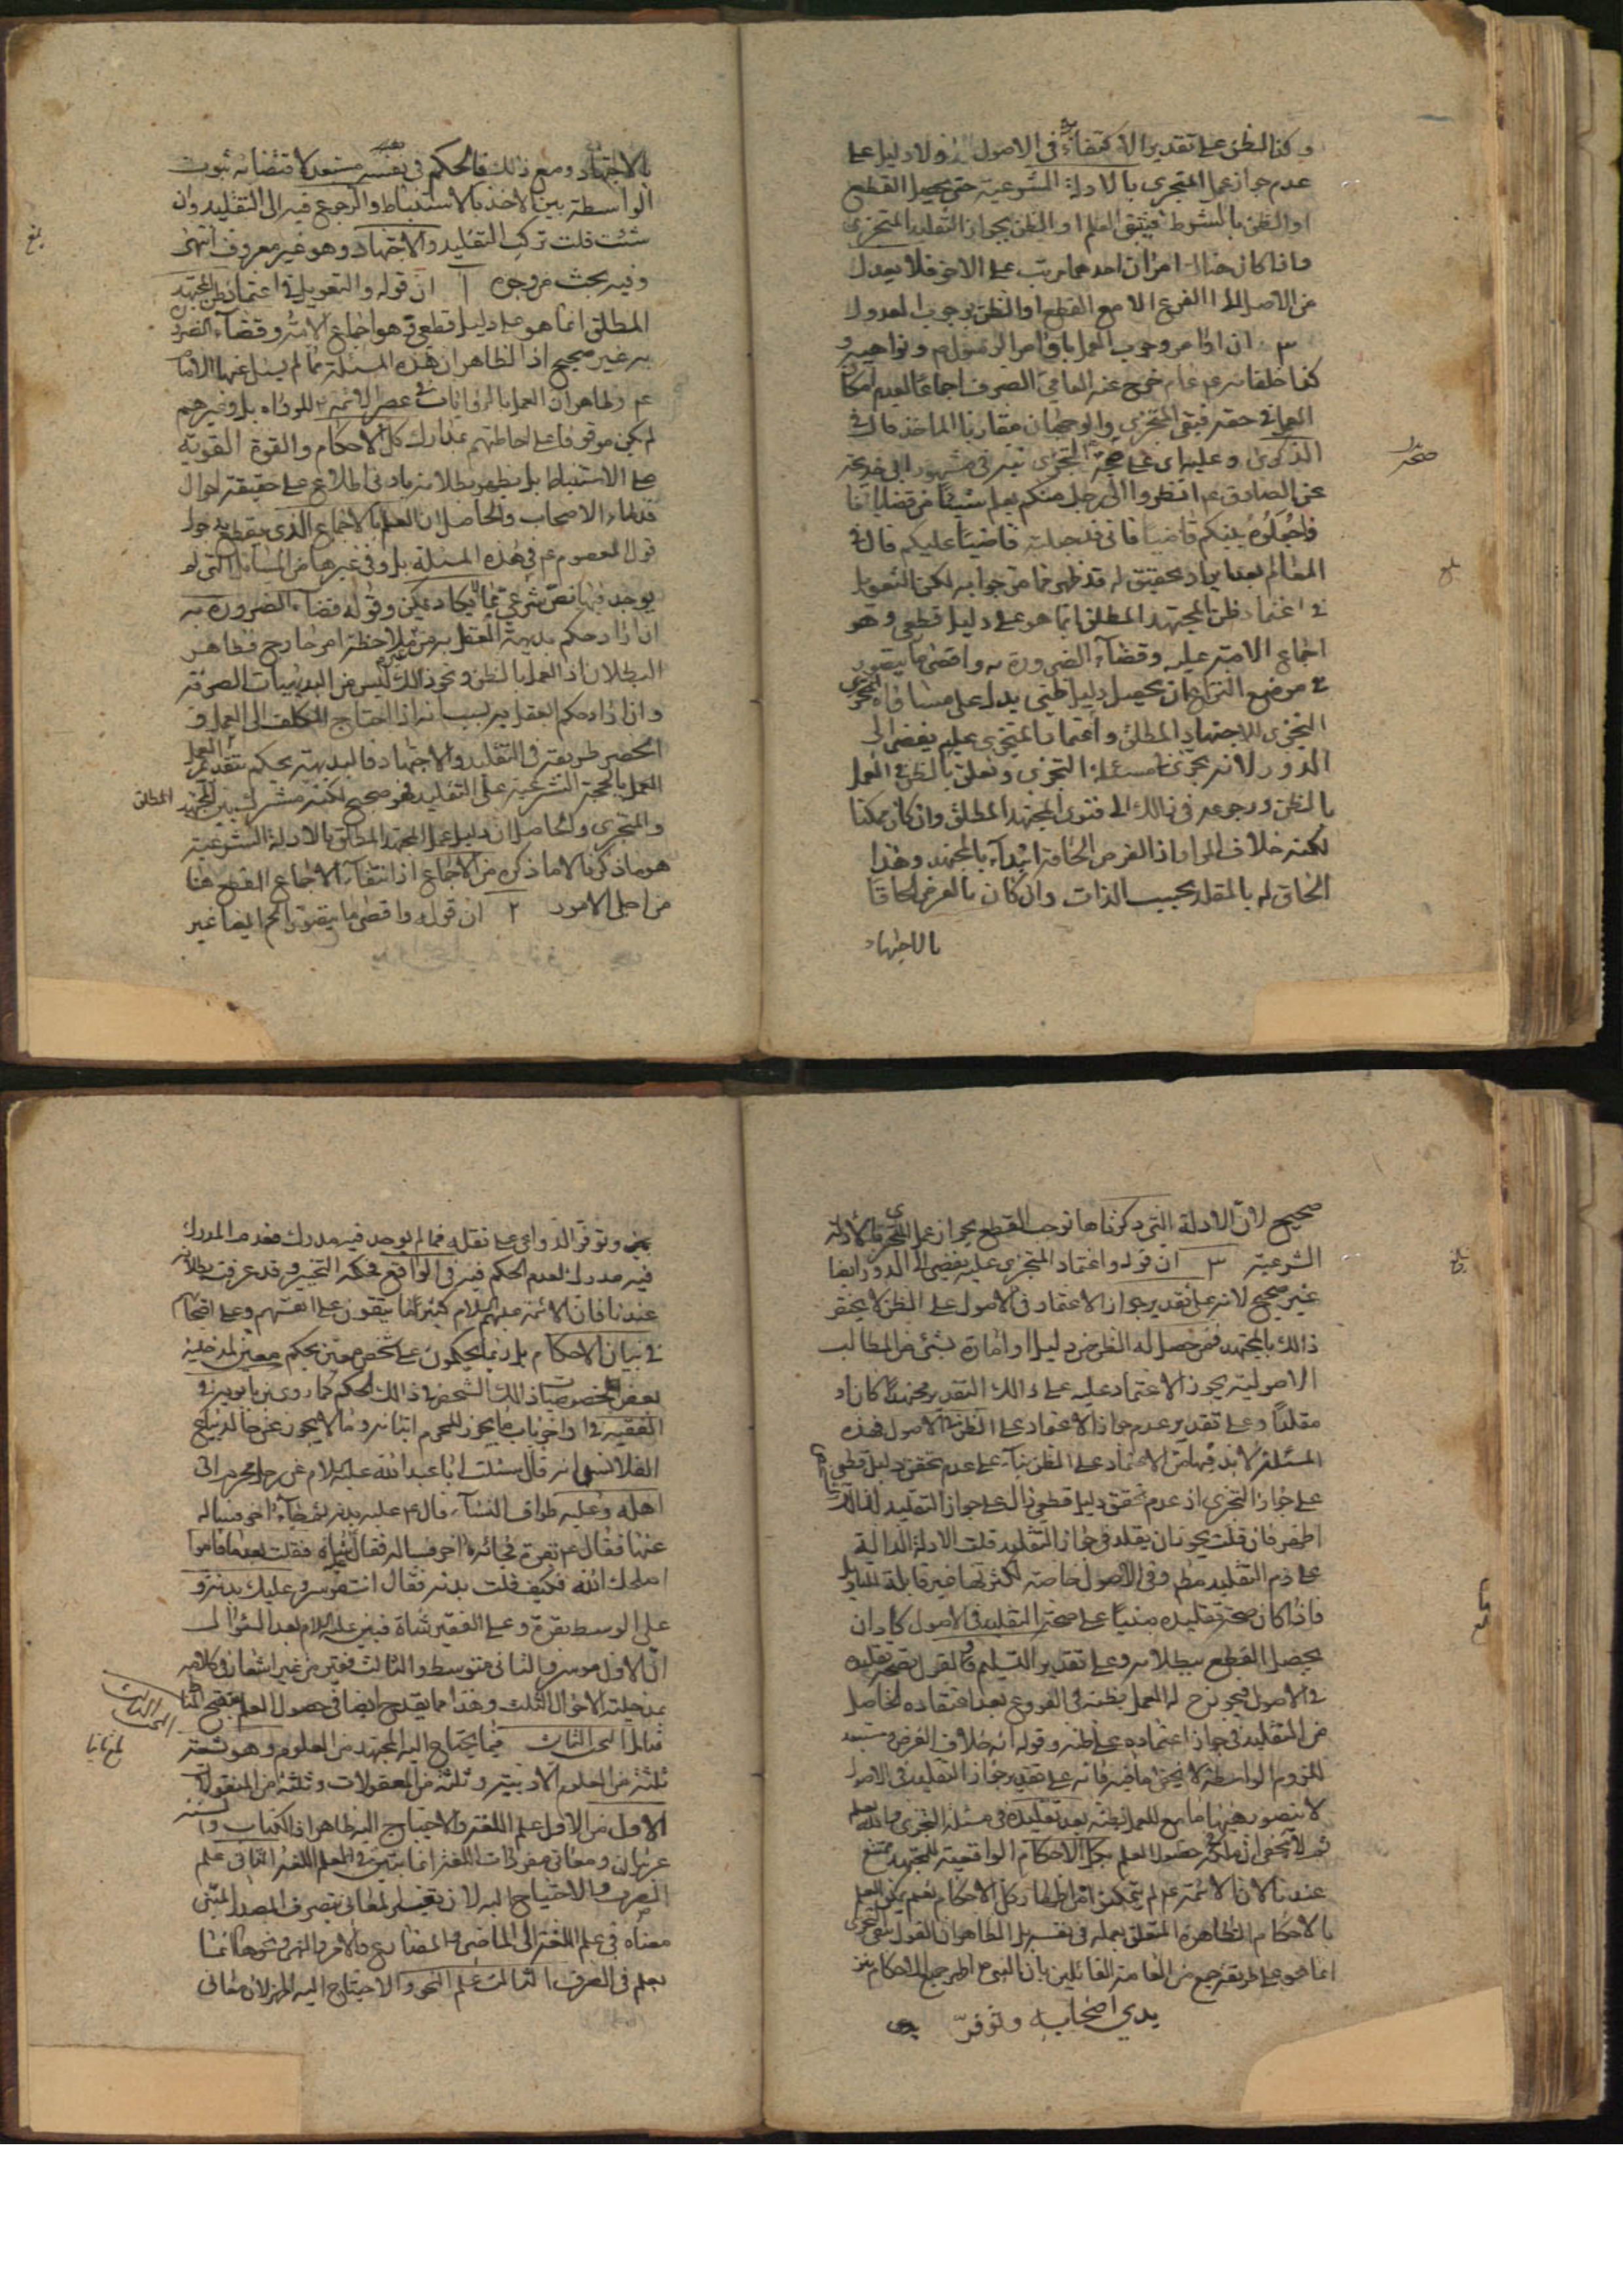 وكذا الظن على تقدير الاكتفاء به في الاصول ولا دليل على
عدم جواز عمل المتجزي بالادلة الشرعية حتى يحصل القطع
او الظن بالمشروط فينتفي العلم او الظن بجواز التقليد للمتجزي
واذا كان هناك امران احدهما مرتب على الاخر فلا يعدل
من الاصل الى الفرع الا مع القطع او الظن بوجوب العدول
٣ ان اوامر وجوب العمل باوامر الرسول ص ونواهيه و
كذا خلفائه ع عام خرج عنه العامي الصرف اجماعا لعدم امكان
العمل في حقه فبقي المتجزي والوجهان متقاربا الماخذ قال في
الذكرى وعليه اي على صحة التجزي نبه في مشهور ابي خديجة
عن الصادق ع انظروا الى رجل منكم يعلم شيئا من قضايانا
فاجعلوه بينكم قاضيا فاني قد جعلته قاضيا عليكم قال في
المعالم بعد ايراد تحقيق له قد ظهر مما مر جوابه لكن التعويل
في اعتماد ظن المجتهد المطلق انما هو على دليل قطعي وهو
اجماع الامة عليه وقضاء الضرورة به واقصى ما يتصور
في موضع النزاع ان يحصل دليل ظني يدل على مساواة
التجزي للاجتهاد المطلق واعتماد المتجزي عليه يفضي الى
الدور لانه تجزي في مسئلة التجزي وتعلق بالظن في العمل
بالظن ورجوعه في ذلك الى فتوى المجتهد المطلق وان كان ممكنا
لكنه خلاف المراد اذ الفرض الحاقه ابتداء بالمجتهد وهذا
الحاق له بالمقلد بحسب الذات وان كان بالعرض الحاقا
بالاجتهاد
بالاجتهاد ومع ذلك فالحكم في نفسه مستبعد لاقتضائه ثبوت
الواسطة بين الاخذ بالاستنباط والرجوع فيه الى التقليد وان
شئت قلت تركب التقليد والاجتهاد وهو غير معروف انتهى
وفيه بحث من وجوه ١ ان قوله والتعويل في اعتماد ظن المجتهد
المطلق انما هو على دليل قطعي وهو اجماع الامة وقضاء الضرورة
به غير صحيح اذ الظاهر ان هذه المسئلة مما لم يسئل عنها الامام
ع وظاهر ان العمل بالروايات في عصر الائمة ع للرواة بل وغيرهم
لم يكن موقوفا على احاطتهم بمدارك كل الاحكام والقوة القوية
على الاستنباط بل يظهر بطلانه بادنى اطلاع على حقيقة احوال
قدماء الاصحاب والحاصل ان العلم بالاجماع الذي يقطع بدخول
قول المعصوم ع في هذه المسئلة بل وفي غيرها من المسائل التي لم
يوجد فيها نص شرعي مما لا يكاد يمكن وقوله قضاء الضرورة به
ان اراد حكم بديهة العقل به من غير ملاحظة امر خارج فظاهر
البطلان اذ العمل بالظن ونحو ذلك ليس من البديهيات الصرفة
وان اراد حكم العقل به بسبب انه اذا احتاج المكلف الى العمل و
انحصر طريقه في التقليد والاجتهاد فالبديهة يحكم بتقدم
العمل بالحجة الشرعية على التقليد فهو صحيح لكنه مشترك بين المجتهد المطلق
والمتجزي والحاصل ان دليل عمل المجتهد المطلق بالادلة الشرعية
هو ما ذكرنا لا ما ذكره من الاجماع اذ انتفاء الاجماع القطعي هنا
من اجلى الامور ٢ ان قوله واقصى ما يتصور الخ ايضا غير
صحيح لان الادلة التي ذكرناها توجب القطع بجواز عمل المتجزي بالادلة
الشرعية ٣ ان قوله واعتماد المتجزي عليه يفضي الى الدور ايضا
غير صحيح لانه على تقدير جواز الاعتماد في الاصول على الظن لا يختص
ذلك بالمجتهد فمن حصل له الظن من دليل او امارة بشئ من المطالب
الاصولية يجوز الاعتماد عليه على ذلك التقدير مجتهدا كان او
مقلدا وعلى تقدير عدم جواز الاعتماد على الظن في الاصول فهذه
المسئلة لابد فيها من الاعتماد على الظن بناء على عدم تحقق دليل قطعي
على جواز التجزي اذ عدم تحقق دليل قطعي دال على جواز التقليد
اظهر فان قلت يجوز ان يقلد في جواز التقليد قلت الادلة الدالة
على ذم التقليد مطلقا وفي الاصول خاصة لكثرتها غير قابلة للتاويل
فاذا كان صحة تقليده مبنيا على صحة التقليد في الاصول كاد ان
يحصل القطع ببطلانه وعلى تقدير التسليم والقول بصحة تقليده
في الاصول فيجوز ح له العمل بظنه في الفروع بعد اعتقاده الحاصل
من التقليد في جواز اعتماده على ظنه وقوله انه خلاف الفرض ومستبعد
للزوم الواسطة لا يخفى ما فيه فانه على تقدير جواز التقليد في الاصول
لا يتصور هيهنا مانع للعمل بظنه بعد تقليده في مسئلة التجزي والله يعلم
ثم لا يخفى ان ملكة حصول العلم بكل الاحكام الواقعية للمجتهد ممتنع
عندنا لان الائمة ع لم يتمكنوا من اظهار كل الاحكام نعم يمكن العلم
بالاحكام الظاهرة المتعلق بعمله في نفسه بل الظاهر ان القول بنفي التجزي
انما هو على طريقة جمع من العامة القائلين بان النبي ص اظهر جميع الاحكام بين
يدي اصحابه وتوفر
بين وتوفر الدواعي على نقله فما لم يوجد فيه مدرك فعدم المدرك
فيه مدرك لعدم الحكم فيه في الواقع فحكمه التخيير وقد عرفت بطلانه
عندنا فان الائمة عليهم السلام كثيرا ما يتقون على انفسهم وعلى اصحابهم
في بيان الاحكام بل ربما يحكمون على شخص معين بحكم معين لمدخلية
بعض خصوصيات ذلك الشخص في ذلك الحكم كما روى ابن بابويه في
الفقيه في اواخر باب ما يجوز للمحرم اتيانه وما لا يجوز عن خالد بياع
القلانسي انه قال سئلت ابا عبد الله عليه السلام عن رجل محرم اتى
اهله وعليه طواف النساء قال ع عليه بدنة ثم جاءه اخر فساله
عنها فقال ع بقرة ثم جاءه اخر فساله فقال شاة فقلت بعد ما قاموا
اصلحك الله فكيف قلت بدنة فقال انت موسر وعليك بدنة و
على الوسط بقرة وعلى الفقير شاة فبين عليه السلام بعد السؤال
ان الاول موسر والثاني متوسط والثالث فقير من غير اشعار في كلامه
بمدخلية الاحوال الثلث وهذا مما يقدح ايضا في حصول العلم
البحث الثالث فيما يحتاج اليه المجتهد من العلوم وهو تسعة
ثلثة من العلوم الادبية وثلثة من المعقولات وثلثة من المنقولات
الاول من الاول علم اللغة والاحتياج اليه ظاهر اذ الكتاب والسنة
عربيان ومعاني مفردات اللغة انما يتبين في علم اللغة الثاني علم
الصرف والاحتياج اليه لان تغيير المعاني بتصرف المصدر المبين
معناه في علم اللغة الى الماضي والمضارع والامر والنهي ونحوها انما
يعلم في الصرف الثالث علم النحو والاحتياج اليه اظهر لان معاني
البحث الثالث